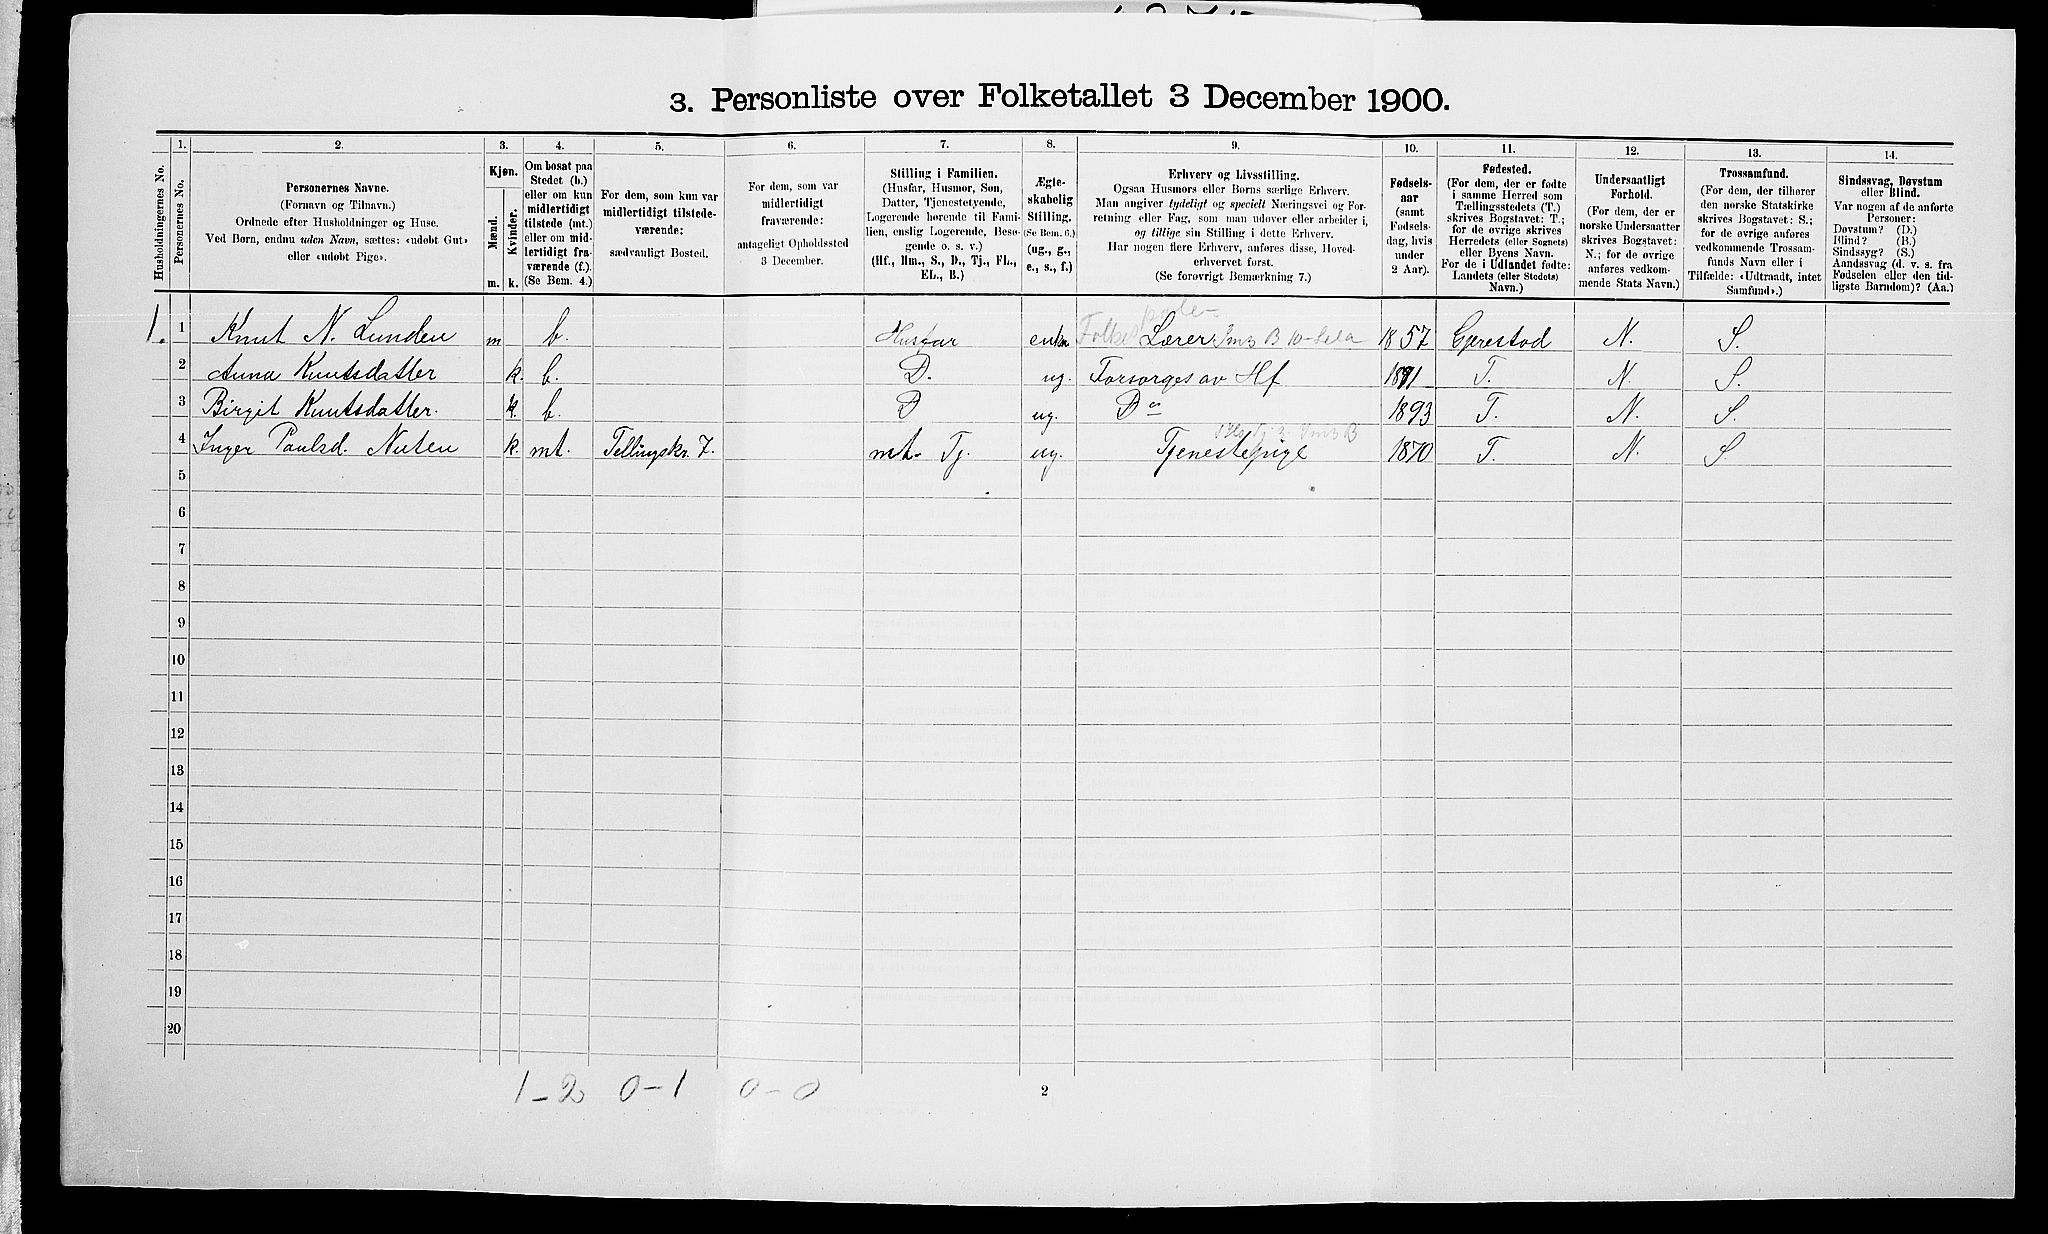 3. Personliste over Folketallet 3 December 1900.
Husholdningernes No.
1.
Personernes No.
2.
Personernes Navne.
(Fornavn og Tilnavn.)
Ordnede efter Husholdninger og Huse.
Ved Børn, endnu uden Navn, sættes: «udøbt Gut»
eller «udøbt Pige».
3.
Kjøn.
Mænd.
Kvinder.
m. k.
4.
Om bosat paa
Stedet (b.)
eller om kun
midlertidigt
tilstede (mt.)
eller om mid-
lertidigt fra-
værende (f.).
(Se Bem. 4.)
5.
For dem, som kun var
midlertidigt tilstede-
værende:
sædvanligt Bosted.
6.
For dem, som var
midlertidigt
fraværende:
antageligt Opholdssted
3 December.
7.
Stilling i Familien.
(Husfar, Husmor, Søn,
Datter, Tjenestetyende,
Logerende hørende til Fami-
lien, enslig Logerende, Besø-
gende o. s. v.)
(Hf., Hm., S., D., Tj., FL.,
EL., B.)
8.
Ægte-
skabelig
Stilling.
(Se Bem. 6.)
(ug., g.,
e., s., f.)
9.
Erhverv og Livsstilling.
Ogsaa Husmors eller Børns særlige Erhverv.
Man angiver tydeligt og specielt Næringsvei og For-
retning eller Fag, som man udover eller arbeider i,
og tillige sin Stilling i dette Erhverv.
Har nogen flere Erhverv, anføres disse, Hoved-
erhvervet først.
(Se forøvrigt Bemærkning 7.)
10.
Fødsels-
aar
(samt
Fødsels-
dag, hvis
under
2 Aar).
11.
Fødested.
(For dem, der er fødte
i samme Herred som
Tællingsstedets (T.)
skrives Bogstavet: T.;
for de øvrige skrives
Herredets (eller Sognets)
eller Byens Navn.
For de i Udlandet fødte:
Landets (eller Stedets)
Navn.)
12.
Undersaatligt
Forhold.
(For dem, der er
norske Undersaatter
skrives Bogstavet:
N.; for de øvrige
anføres vedkom-
mende Stats Navn.)
13.
Trossamfund.
(For dem, der tilhører
den norske Statskirke
skrives Bogstavet: S.;
for de øvrige anføres
vedkommende Trossam-
funds Navn eller i
Tilfælde: «Udtraadt, intet
Samfund».)
14.
Sindssvag, Døvstum
eller Blind.
Var nogen af de anførte
Personer:
Døvstum? (D.)
Blind? (B.)
Sindssyg? (S.)
Aandssvag (d. v. s. fra
Fødselen eller den tid-
ligste Barndom)? (Aa.)
1. 1 Knut N. Lunden m b. Husfar enkm Folkeskole- Lærer B 1857 Gjerestad N. S.
2 Anna Knutsdatter k. b. D. ug. Forsørges av Hf 1891 T. N. S.
3 Birgit Knutsdatter. k. b. D ug. Do 1893 T. N. S.
4 Inger Paulsd. Nuten k. mt. Tellingskr. 7. mt. Tj. ug. Tjenestepige 1870 T. N. S
5
6
7
8
9
10
11
12
13
14
15
16
17
18
19
20
1-2 0-1 0-0
2